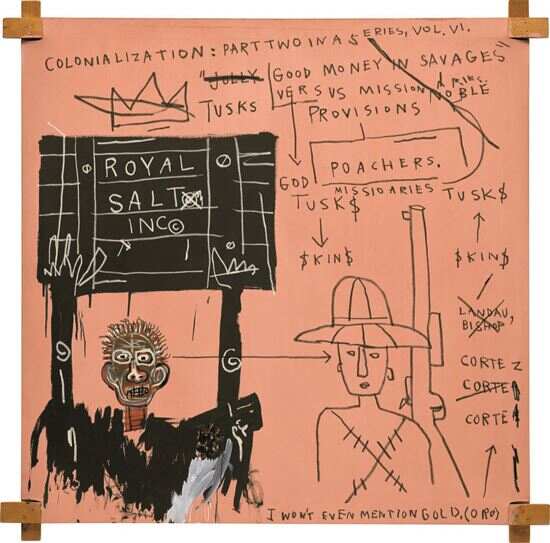 COLONIALIZATION: PART TWO IN A SERIES, VOL. VI.
"JOLLY GOOD MONEY IN SAVAGES"
VERSUS MISSIONARIES.
NOBLE
TUSKS
PROVISIONS
POACHERS.
GOD
MISSIOARIES
TUSK$
TUSK$
$KIN$
$KIN$
ROYAL
SALT
INC©
LANDAU,
BISHOP
CORTEZ
CORTE
CORTE
I WON'T EVEN MENTION GOLD, (ORO)